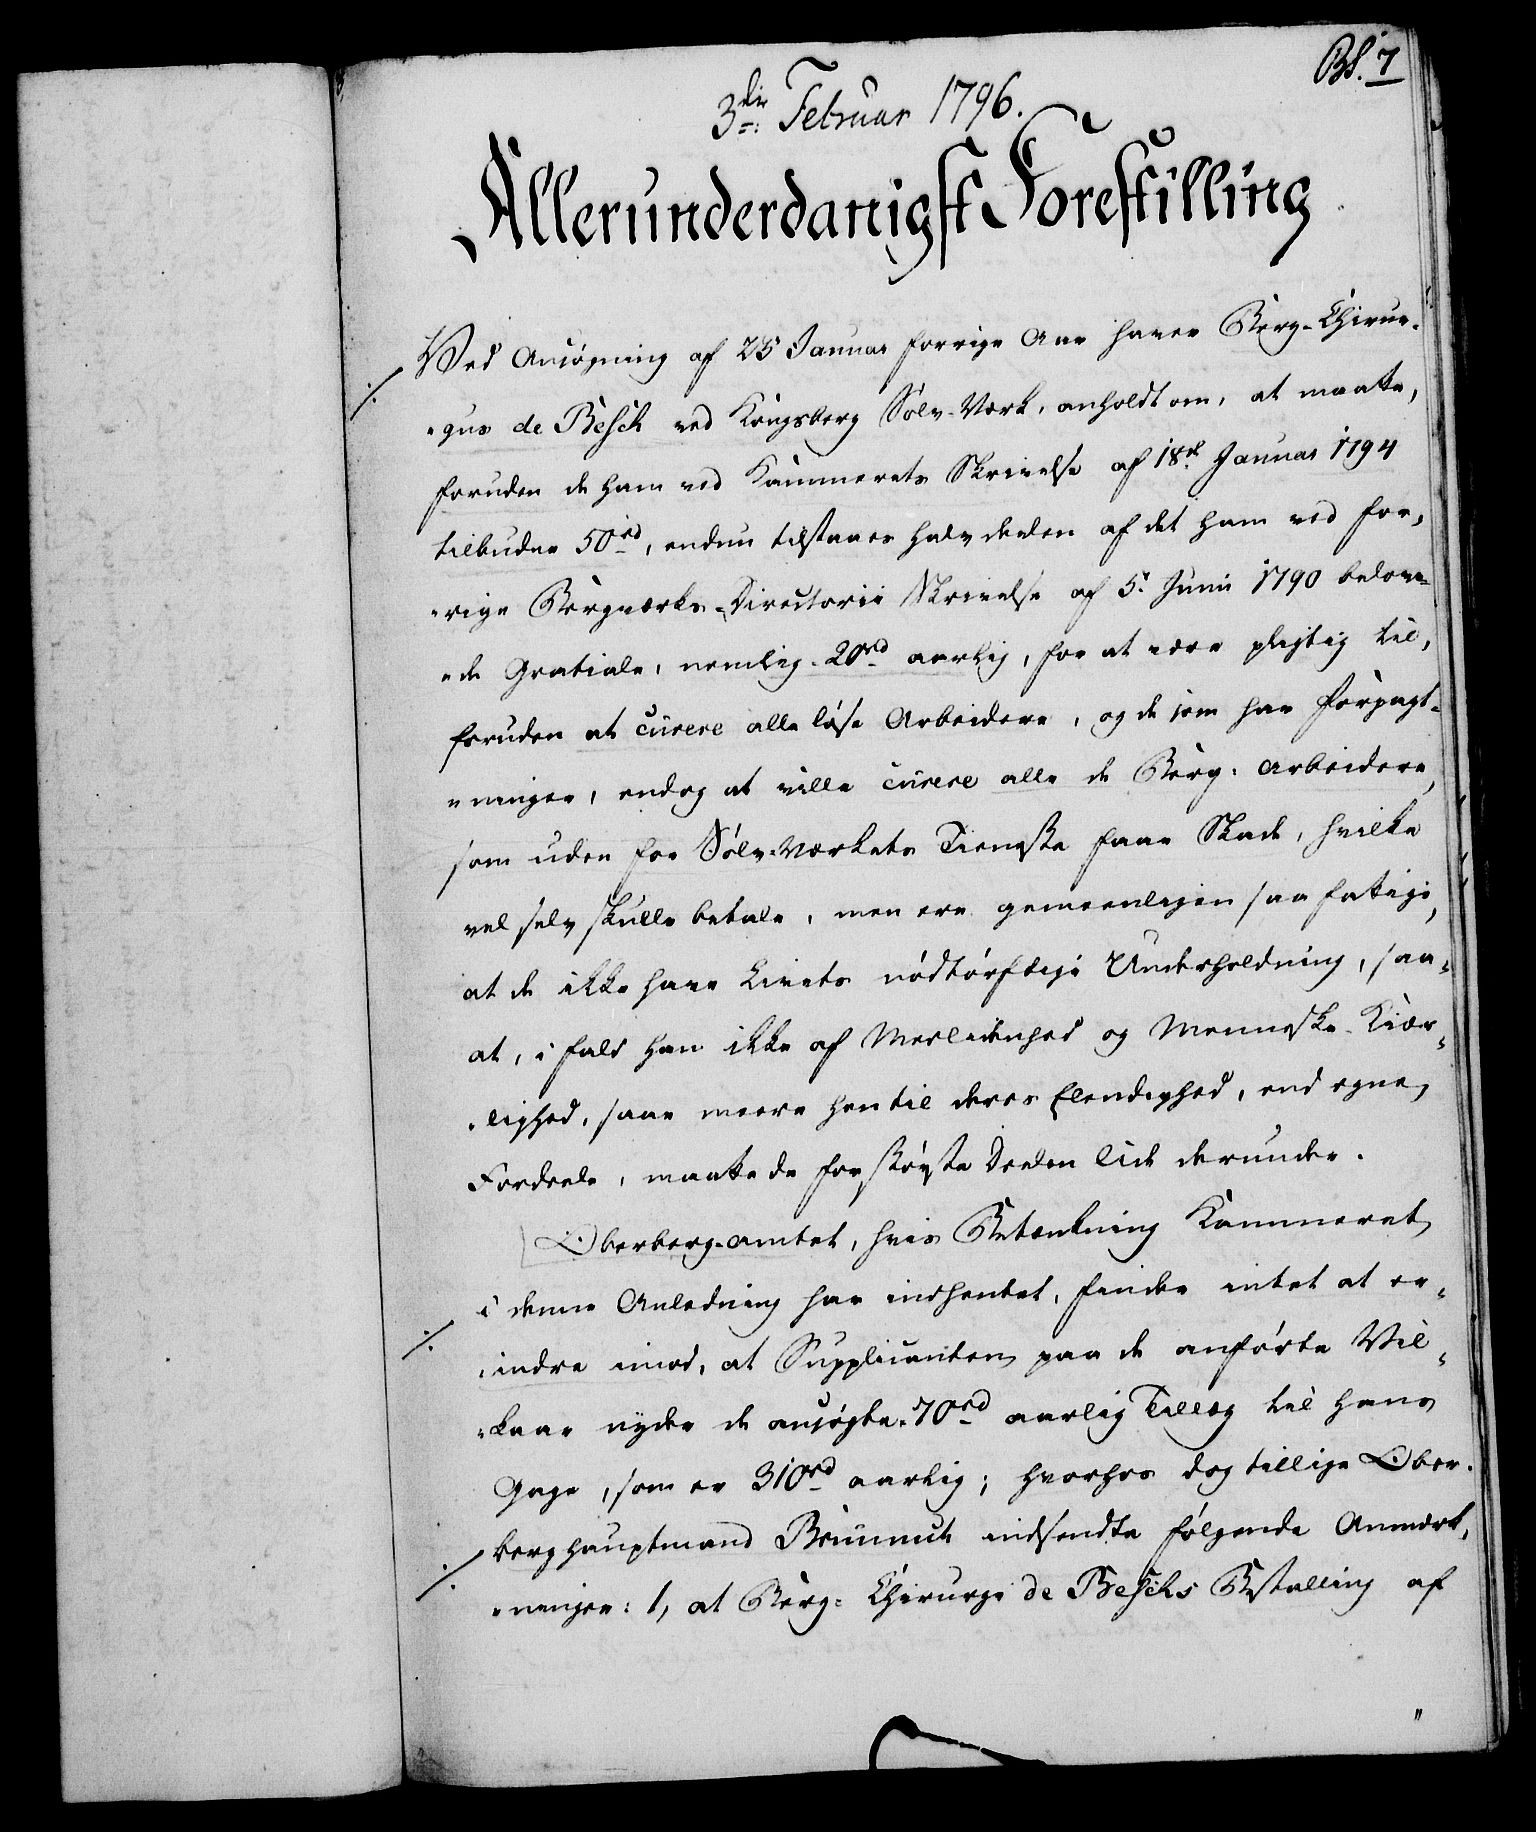 Bl. 7
3die Februar 1796.
Allerunderdanigst Forestilling
Ved Ansøgning af 25 Januar forrige Aar haver Berg-Chirur-
"gus de Besch ved Kongsberg Sølv-Værk, anholdt om, at maatte,
foruden de ham ved Kammerets Skrivelse af 18de Januar 1794
tilbudne 50rd, endnu tilstaaes halvdeelen af det ham ved for,
"rige Bergværks-Directorii Skrivelse af 5. Junii 1790 belove-
"de Gratiale, nemlig 20rd aarlig, for at være pligtig til,
foruden at curere alle løse Arbeidere, og de som har Forpagt-
"ninger, endog at ville curere alle de Berg-Arbeidere,
som uden for Sølv-Værkets Tieneste faar Skade, hvilke
vel selv skulle betale, men ere gemeenligen saa fattige,
at de ikke have Livets nødtørftige Underholdning, saa-
at, i fald han ikke af Medlidenhed og Menneske-Kiær-
"lighed, saae meere hen til deres Elendighed, end egne
Fordeele, maatte de for største Deelen lide derunder.
Oberberg-amtet, hvis Betænkning Kammeret
i denne Anledning har indhentet, finder intet at er-
"indre imod, at Supplicanten paa de anførte Vil-
"kaar nyder de ansøgte 70rd aarlig Tillæg til hans
Gage, som er 310rd aarlig; hvorhos dog tillige Ober-
berghauptmand Brünnich indsendte følgende Anmærk-
"ninger: 1, at Berg-Chirurgi de Beschs Bestalling af